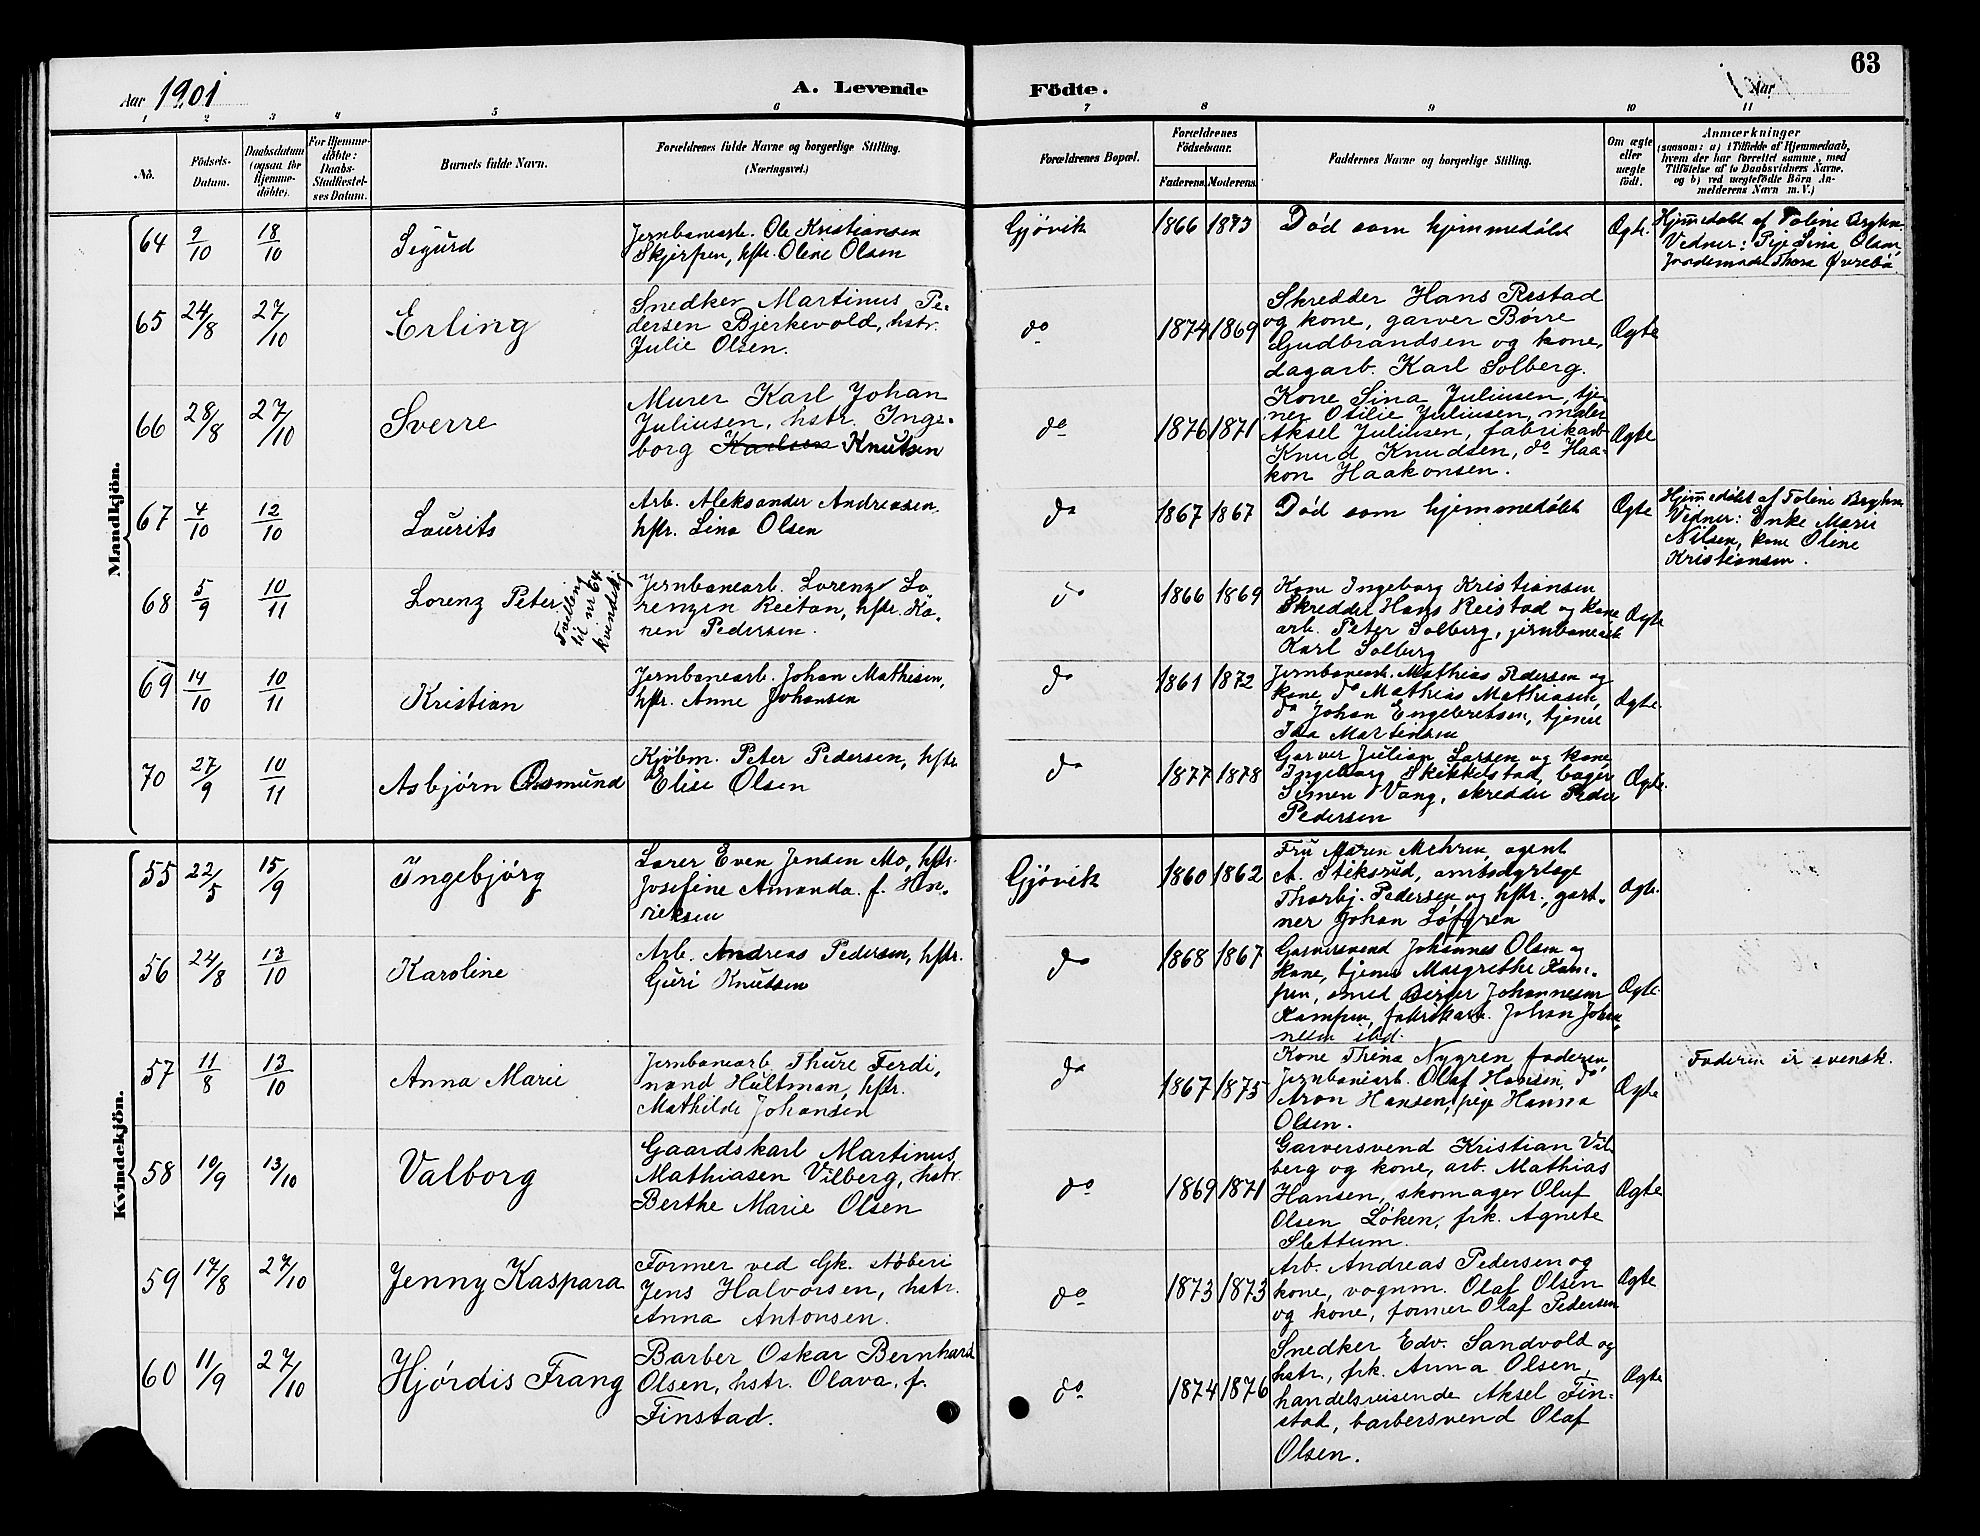 63
Aar 1901
A. Levende
Födte.
Aar
1 2 3 4 5 6 7 8 9 10 11
No.
Födsels-Datum.
Daabsdatum (ogsaa for Hjemme-döbte).
For Hjemme-döbte: Daabs-Stadfæstel-ses Datum.
Barnets fulde Navn.
Forældrenes fulde Navne og borgerlige Stilling.
(Næringsvei.)
Forældrenes Bopæl.
Forældrenes Födselsaar.
Faderens. Moderens.
Faddernes Navne og borgerlige Stilling.
Om ægte eller uægte födt.
Anmærkninger
(saasom: a) i Tilfælde af Hjemmedaab,
hvem der har forrettet samme, med
Tilföielse af to Daabsvidners Navne,
og b) ved uægtefödte Börn An-
melderens Navn m. V.)
Mandkjön.
64 9/10 18/10 Sigurd
Jernbanearb. Ole Kristiansen
Skjerpen, hstr. Oline Olsen
Gjövik 1866 1873 Död som hjemmedöbt Ægte.
Hjemmedöbt af Toline Bryhn
Vidner: Pige Lina Olsen,
Jordemoder Thora Övrebö
65 24/8 27/10 Erling
Snedker Martinus Pe-
dersen Bjerkevold, hstr.
Julie Olsen.
do 1874 1869
Skredder Hans Restad
og kone, garver Börre
Gudbrandsen og kone,
dagarb. Karl Solberg.
Ægte
66 28/8 27/10 Sverre
Murer Karl Johan
Juliusen, hstr. Inge-
borg Karlsen Knutsen
do 1876 1871
Kone Lina Juliusen, tje-
ner Otilie Juliusen, maler
Aksel Juliusen, fabrikarb.
Knud Knudsen, do Haa-
kon Haakonsen.
Ægte
67 4/10 12/10 Laurits
Arb. Aleksander Andreasen,
hstr. Lina Olsen
do 1867 1867 Död som hjemmedöbt Ægte
Hjemmedöbt af Toline Bryhn
Vidner: Enke Marie
Nilsen, kone Oline
Kristiansen.
68 5/9 10/11 Lorenz Peter.
Tvilling
til nr 64
kvindekj
Jernbanearb. Lorenz Lo
renzen Reitan, hstr. Ka-
ren Pedersen.
do 1866 1869
Kone Ingeborg Kristiansen
Skredder Hans Reistad og kone
arb. Peter Solberg, jernbanearb
Karl Solberg
Ægte
69 14/10 10/11 Kristian
Jernbanearb. Johan Mathisen,
hstr. Anne Johansen
do 1861 1872
Jernbanearb. Mathias Pedersen og
kone, do Mathias Mathiasen,
do Johan Engebretsen, tjener
Ida Martinsen
Ægte.
70 27/9 10/11 Asbjörn Osmund
Kjöbm. Peter Pedersen, hstr
Elise Olsen
do 1877 1878
Garver Julian Larsen og kone
Ingeborg Skikkelstad, bager
Simen Vang, skredder Peder
Pedersen
Ægte.
Kvindekjön.
55 22/5 15/9 Ingebjörg
Lærer Even Jensen Mo, hstr.
Josefine Amanda f. Hen-
riksen
Gjövik 1860 1862
Fru Maren Mehren, agent
A. Stiksrud, amtsdyrlæge
Thorbj. Pedersen og hstr., gart-
ner Johan Löfgren
Ægte.
56 24/8 13/10 Karoline
Arb. Andreas Pedersen, hstr.
Guri Knutsen
do 1868 1867
Garversvend Johannes Olsen og
kone, tjener Margrethe Kam-
pen, smed Birger Johannesen
Kampen, fabrikarb. Johan Johan-
nesen ibd.
Ægte.
57 11/8 13/10 Anna Marie
Jernbanearb. Thure Ferdi-
nand Hultman, hstr.
Mathilde Johansen
do 1867 1875
Kone Thina Nygren, faderen,
Jernbanearb. Olaf Hansen, do
Aron Hansen, pige Hanna
Olsen.
Ægte
Faderen er svensk.
58 10/9 13/10 Valborg
Gaardskarl Martinus
Mathiasen Vilberg, hstr.
Berthe Marie Olsen
do 1869 1871
Garversvend Kristian Vil-
berg og kone, arb. Mathias
Hansen, skomager Oluf
Olsen Löken, frk. Agnete
Slettum.
Ægte
59 17/8 27/10 Jenny Kaspara
Former ved Gk. stöberi
Jens Halvorsen, hstr.
Anna Antonsen.
do 1873 1873
Arb. Andreas Pedersen og
kone, vognm. Olaf Olsen
og kone, former Olaf Pedersen
Ægte
60 11/9 27/10 Hjördis Frang
Barber Oskar Bernhard
Olsen, hstr. Olava, f.
Finstad.
do 1874 1876
Snedker Edv. Sandvold og
hstr, frk. Anna Olsen,
handelsreisende Aksel Fin-
stad, barbersvend Olaf
Olsen.
Ægte